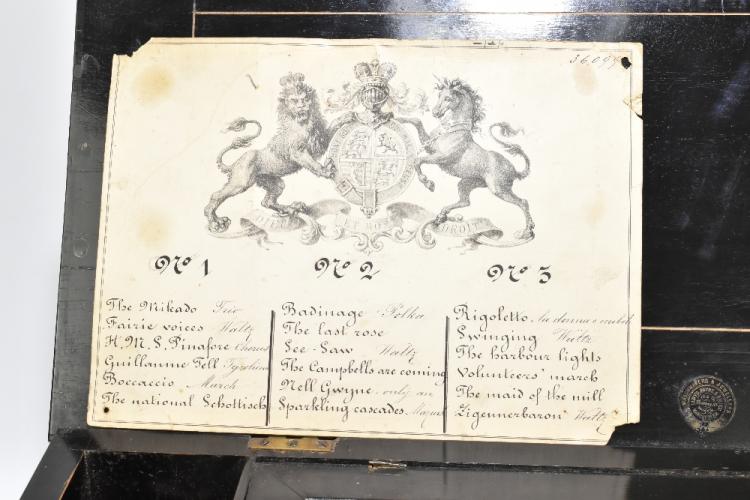 36,09
DIEU ET MON DROIT
No 1
The Mikado Trio
Fairie voices Waltz
H. M. S. Pinafore Chorus
Guillaunne Tell Tyrolien
Boccaccio March
The national Schottisch
No 2
Badinage Polka
The last rose
See-Saw Waltz
The Campbells are coming
Nell Gwyne only an
Sparkling cascades Mazur
No 3
Rigoletto La donna e mobile
Swinging Waltz
The harbour lights
Volunteers' march
The maid of the mill
Zigeunerbaron Waltz